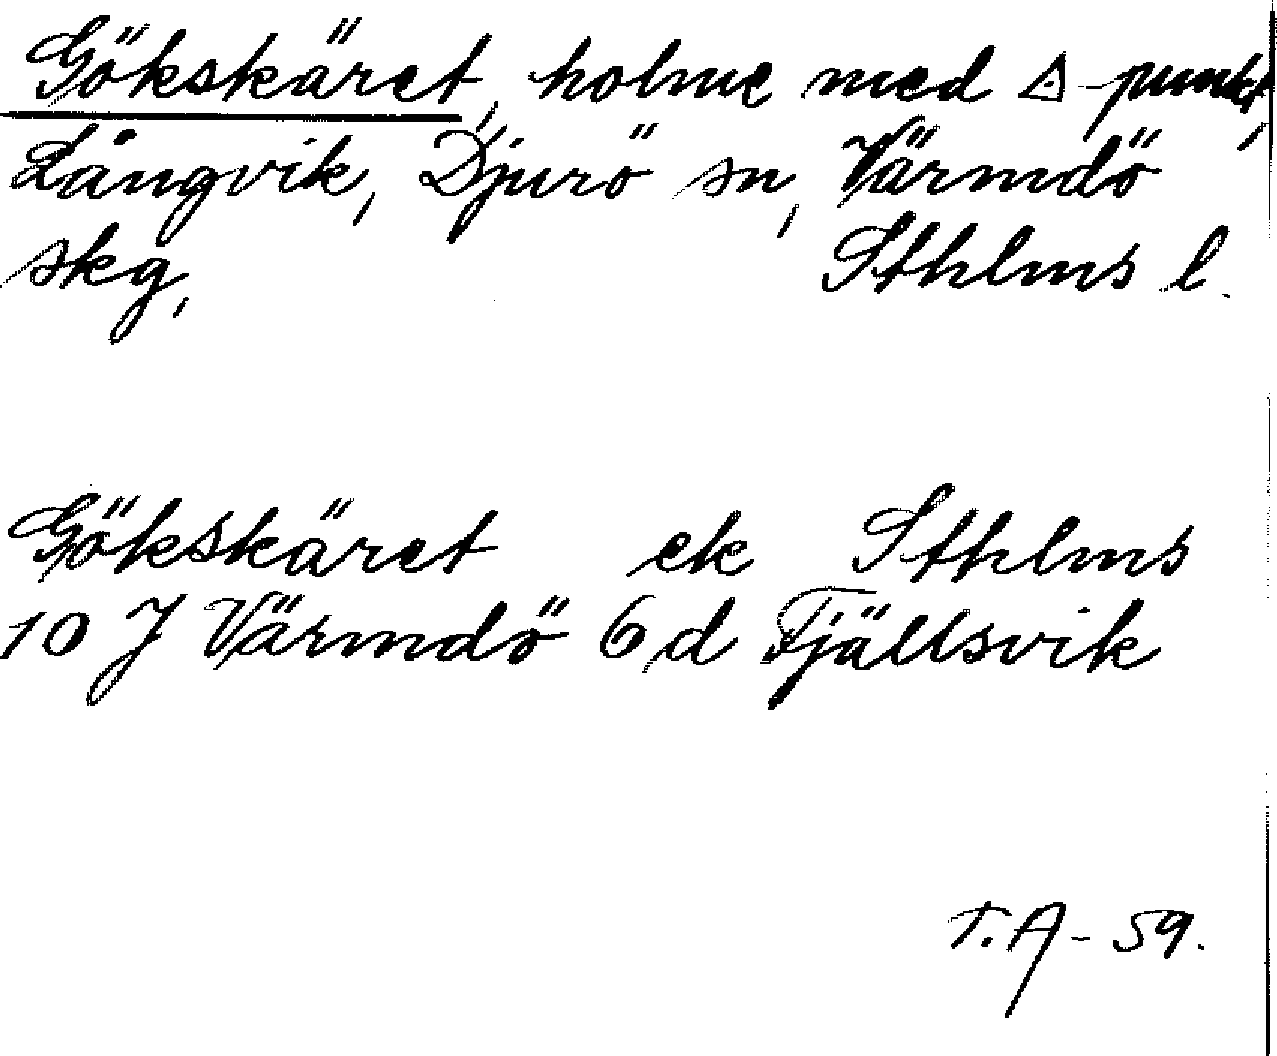 Gökskäret, holme med △-punkt,
Långvik, Djurö sn, Värmdö
skg, Sthlms l.
Gökskäret ek Sthlms
10 J Värmdö 6 d Fjällsvik
T.A - 59.